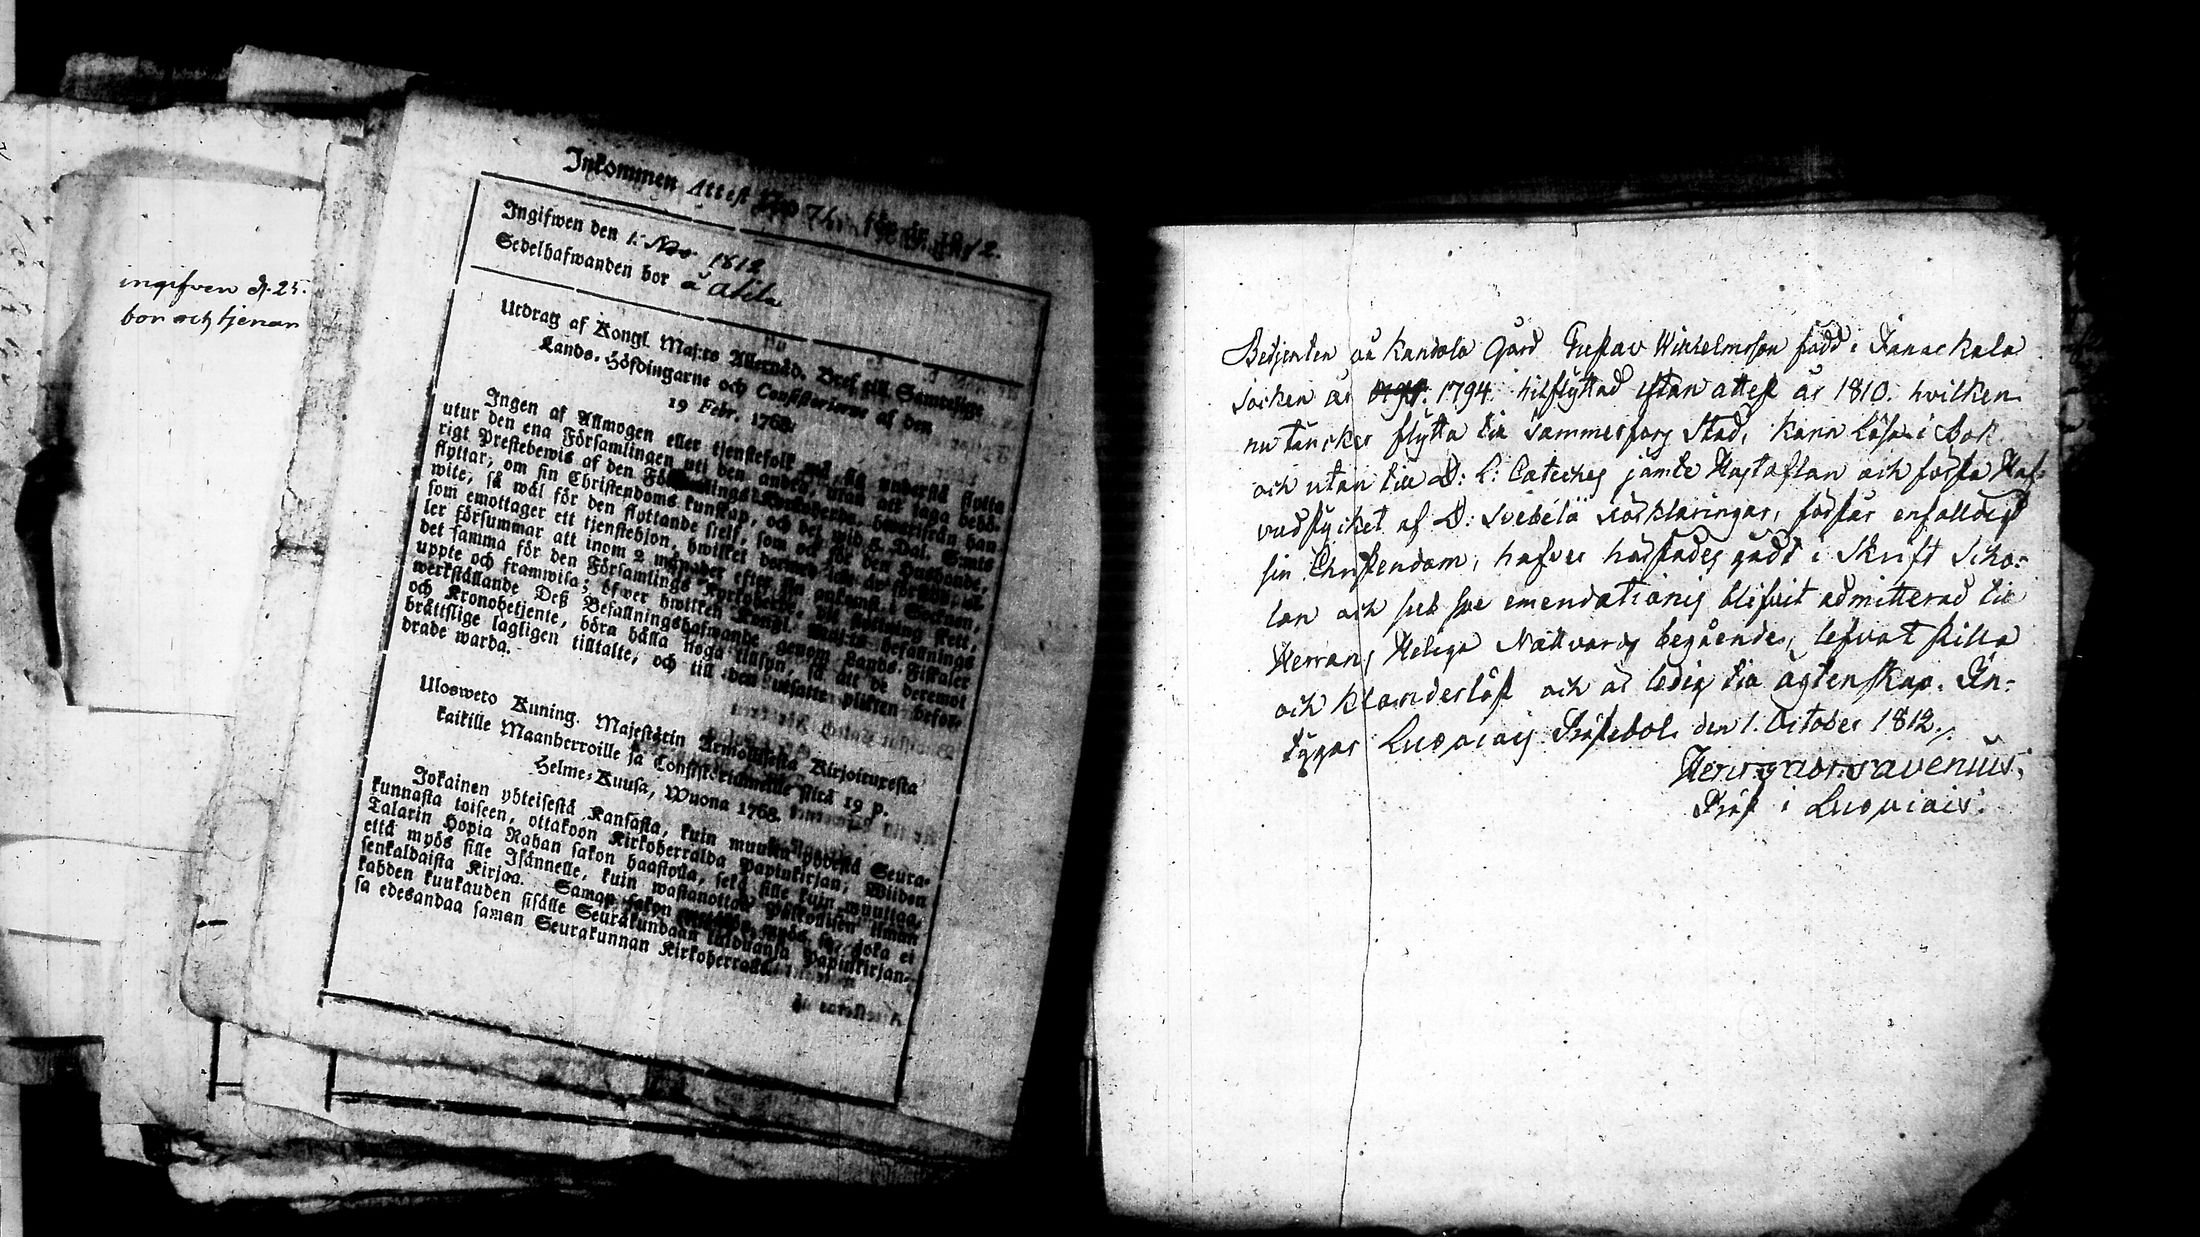 ingifven d. 25.
bor och tjenar
Inkommen Attest No 74 för år 1812.
Ingifwen den 1. Nov. 1812
Sedelhafwanden bor å Alila
Utdrag af Kongl. Maj:ts Allernåd. Bref till Samtelige
Lands-Höfdingarne och Consistorierne af den
19 Febr. 1768.
Ingen af Allmogen eller tjenstefolk må sig understå flytta
utur den ena Församlingen uti den andra, utan att taga behö-
rigt Prestebewis af den Församlings Kyrkoherde, hwarifrån han
flyttar, om sin Christendoms kunskap, och det wid 5 Dal. S:mts
wite, så wäl för den flyttande sjelf, som ock för den Husbonde,
som emottager ett tjenstehjon, hwilket dermed icke är försedt, el-
ler försummar att inom 2 månader efter sin ankomst i Socknen,
det samma för den Församlings Kyrkoherde, till hwilken skett,
uppte och framwisa; öfwer hwilket Kongl. Maj:ts befallnings
werkställande Deß Befallningshafwande genom Lands-Fiskaler
och Kronobetjente, böra hålla noga tillsyn, så att de deremot
brättslige lagligen tilltalte, och till den utsatte plikten befor-
drade warda.
Ulosweto Kuning. Majestetin Armollisesta Kirjoituxesta
kaikille Maanherroille ja Consistoriumeille siitä 19 p.
Helme-Kuusa, Wuona 1768.
Jokainen yhteisestä Kansasta, kuin muuttaa yhdestä Seura-
kunnasta toiseen, ottakoon Kirkoherralda Papinkirjan, Wiiden
Talarin Hopia Rahan sakon haastolla, sekä sille kuin muuttaa,
että myös sille Isännelle, kuin wastanottaa Palkollisen ilman
senkaldaista Kirjaa. Saman sakon myös se, joka ei
kahden kuukauden sisälle Seurakundaan tulduansa Papinkirjan-
sa edesandaa saman Seurakunnan Kirkoherralle.
Betjenten på Kandala Gård Gustav Wilhelmsson född i Janackala
Socken år 1794. hitflyttad utan attest år 1810. hvilken
nu täncker flytta till Tammerfors Stad, kann läsa i Bok
och utan till D: L: Cateches jämte Hustaflan och första Huf-
vudstycket af D: Svebelii Förklaringar, förstår enfalldigt
sin Christendom, hafver härstädes gådt i Skrift Scho-
lan och sub spe emendationis blifvit admitterad till
Herrans Heliga Nattvards begående, lefvat stilla
och klanderlöst och är ledig till ägtenskap. In-
tygar Luopiois Prästebol den 1. October 1812.
Henr. Gabr. Savenius.
Präst i Luopiois.